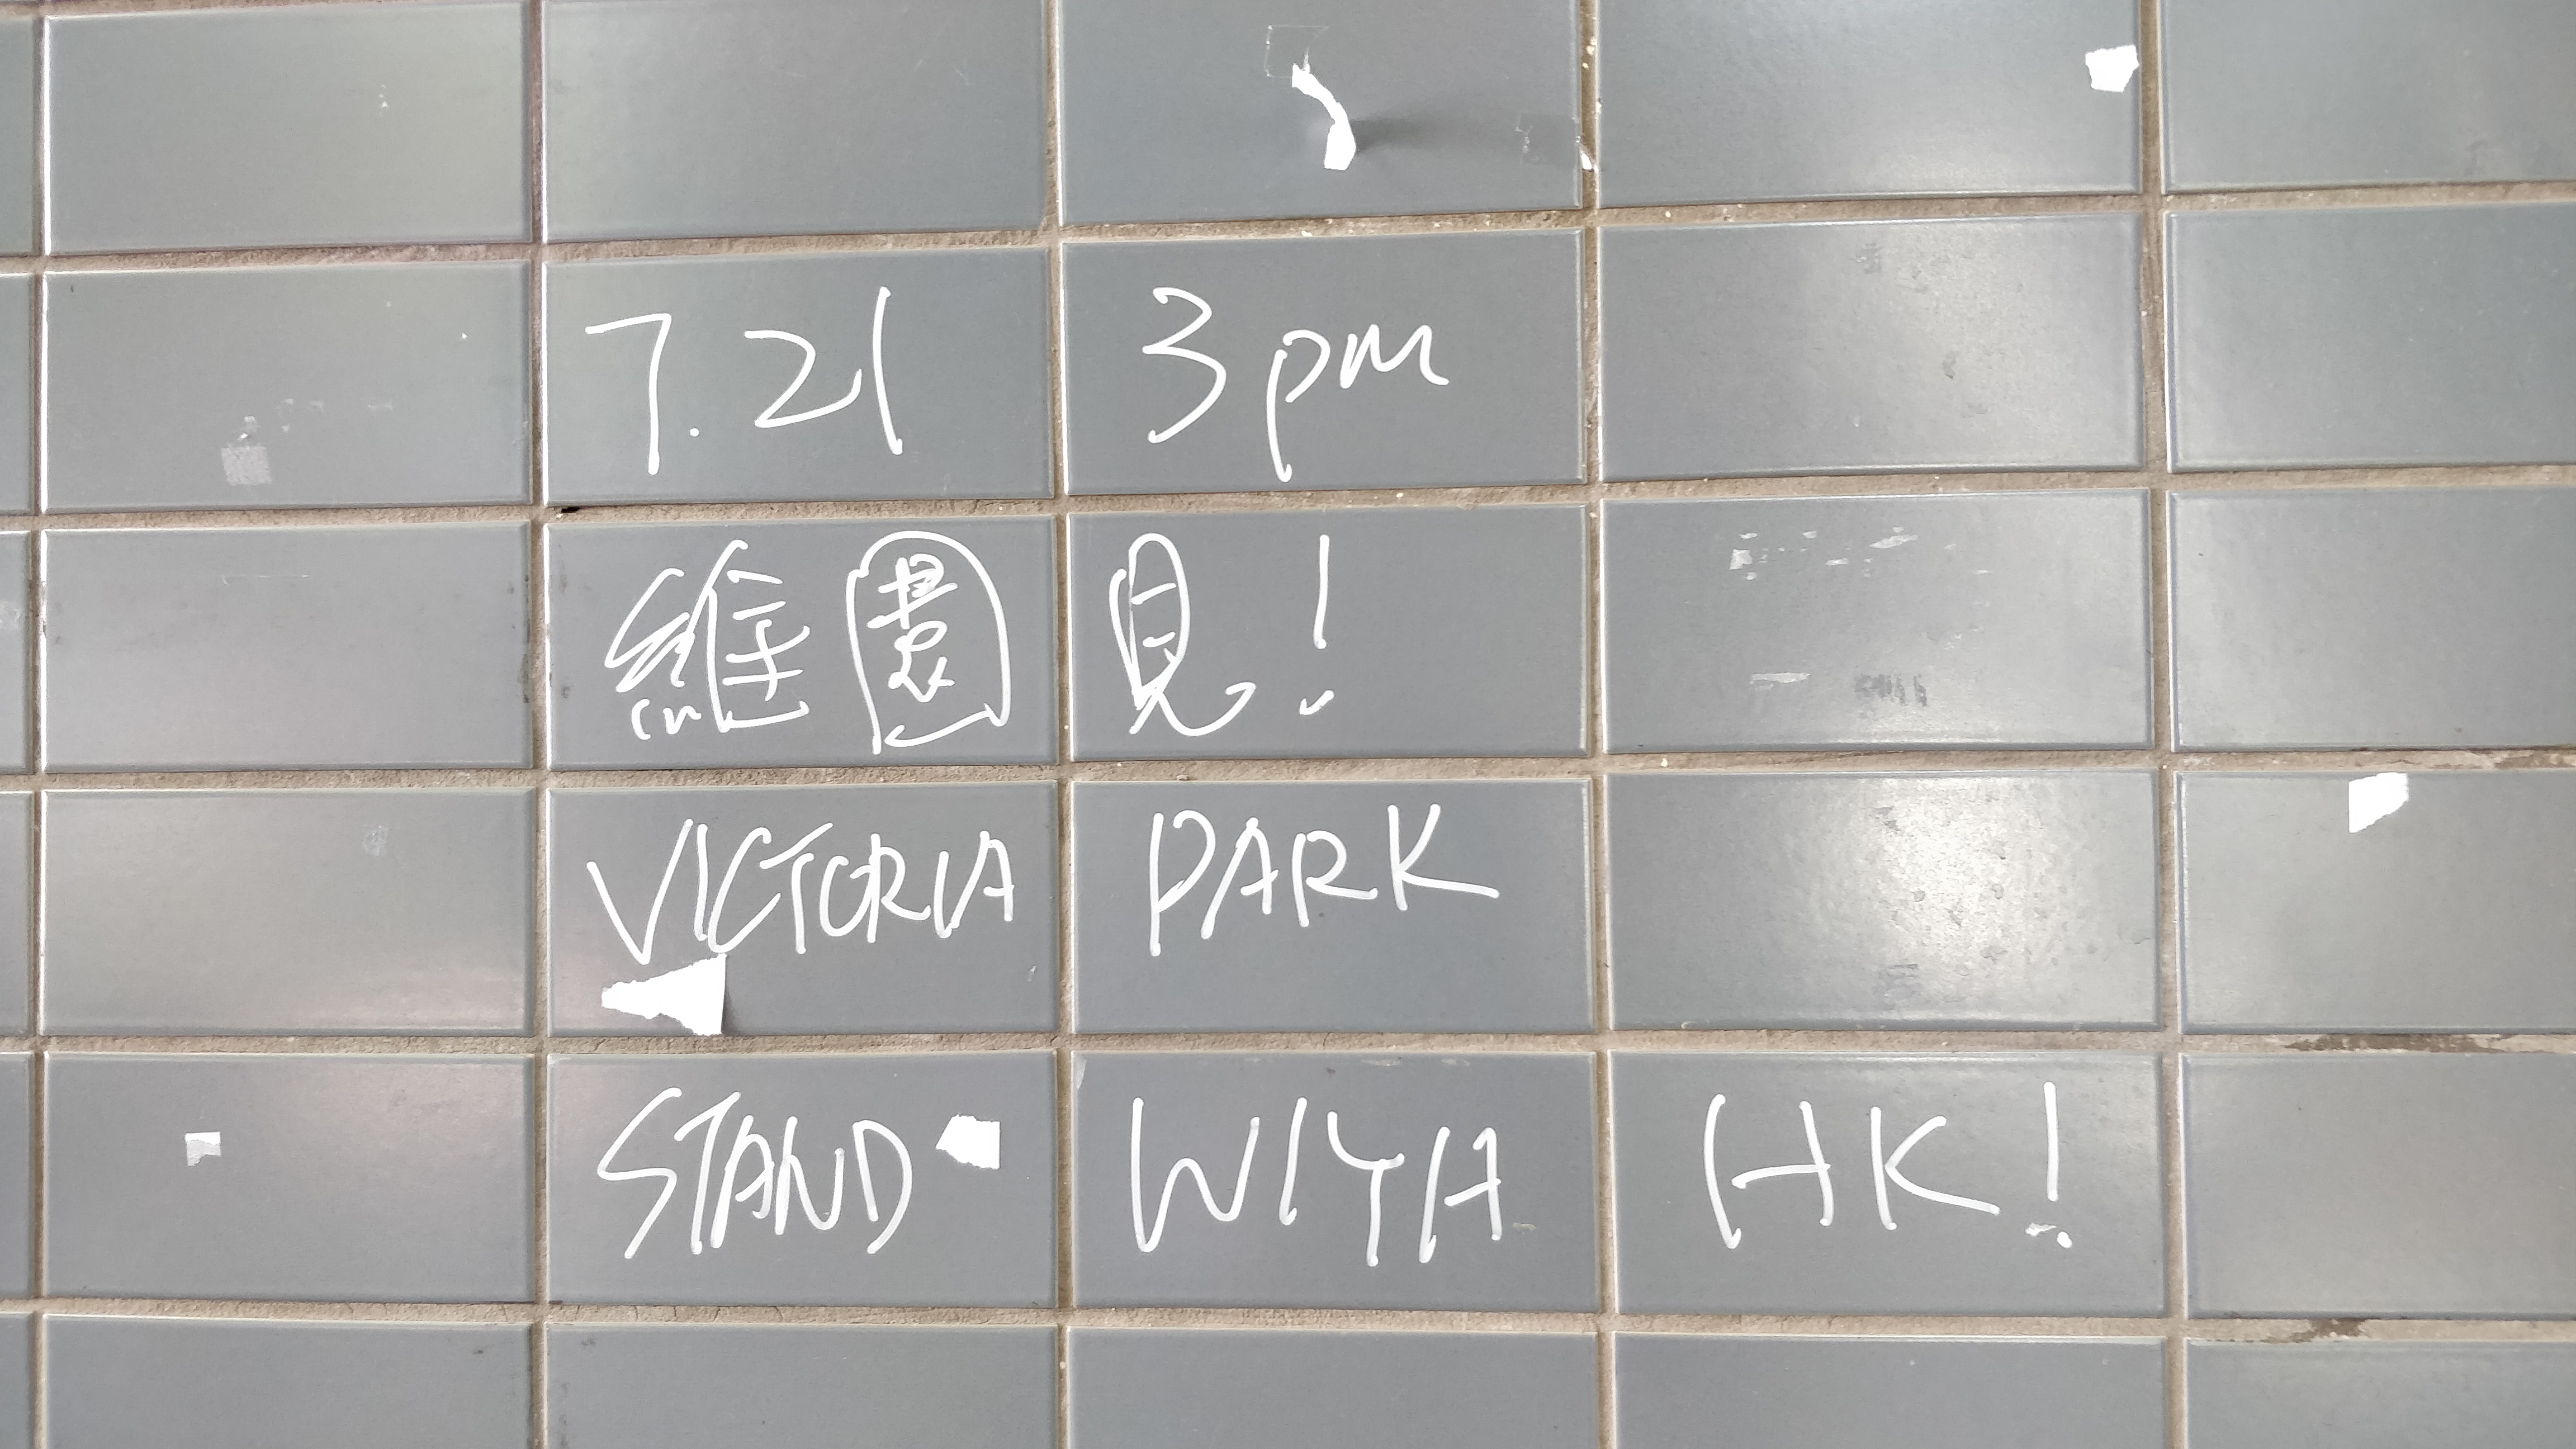 7.21 3pm
維園見!
VICTORIA PARK
STAND WITH HK!